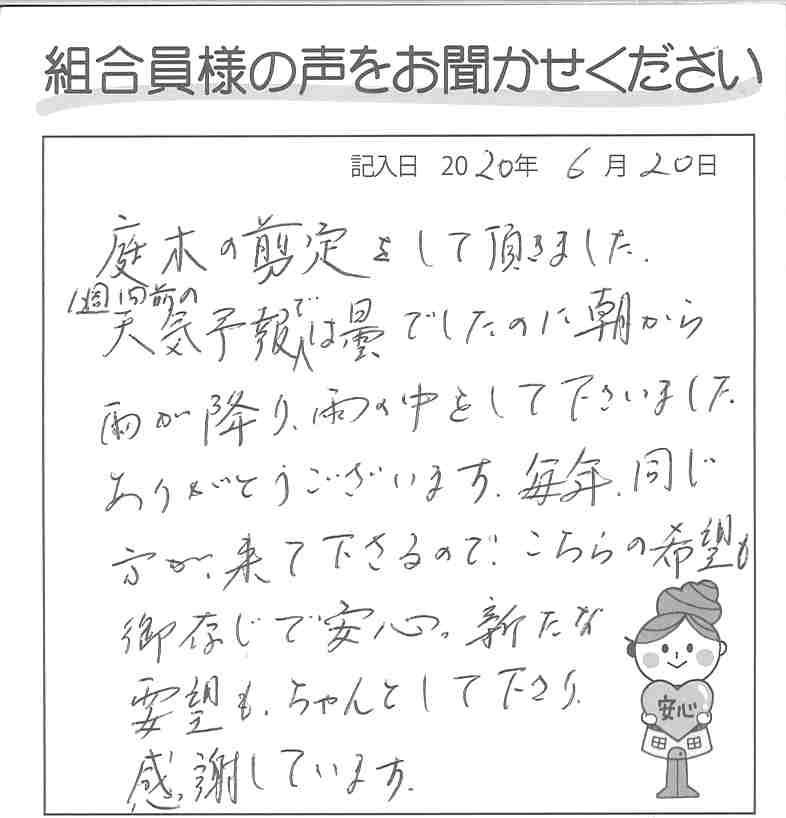 組合員様の声をお聞かせください
記入日 2020年 6月20日
庭木の剪定をして頂きました.
1週間前の
天気予報では曇でしたのに朝から
雨が降り、雨の中をして下さいました
ありがとうございます. 毎年、同じ
方が、来て下さるので、こちらの希望も
御存じで安心。新たな
要望も、ちゃんとして下さり、
感謝しています.
安心